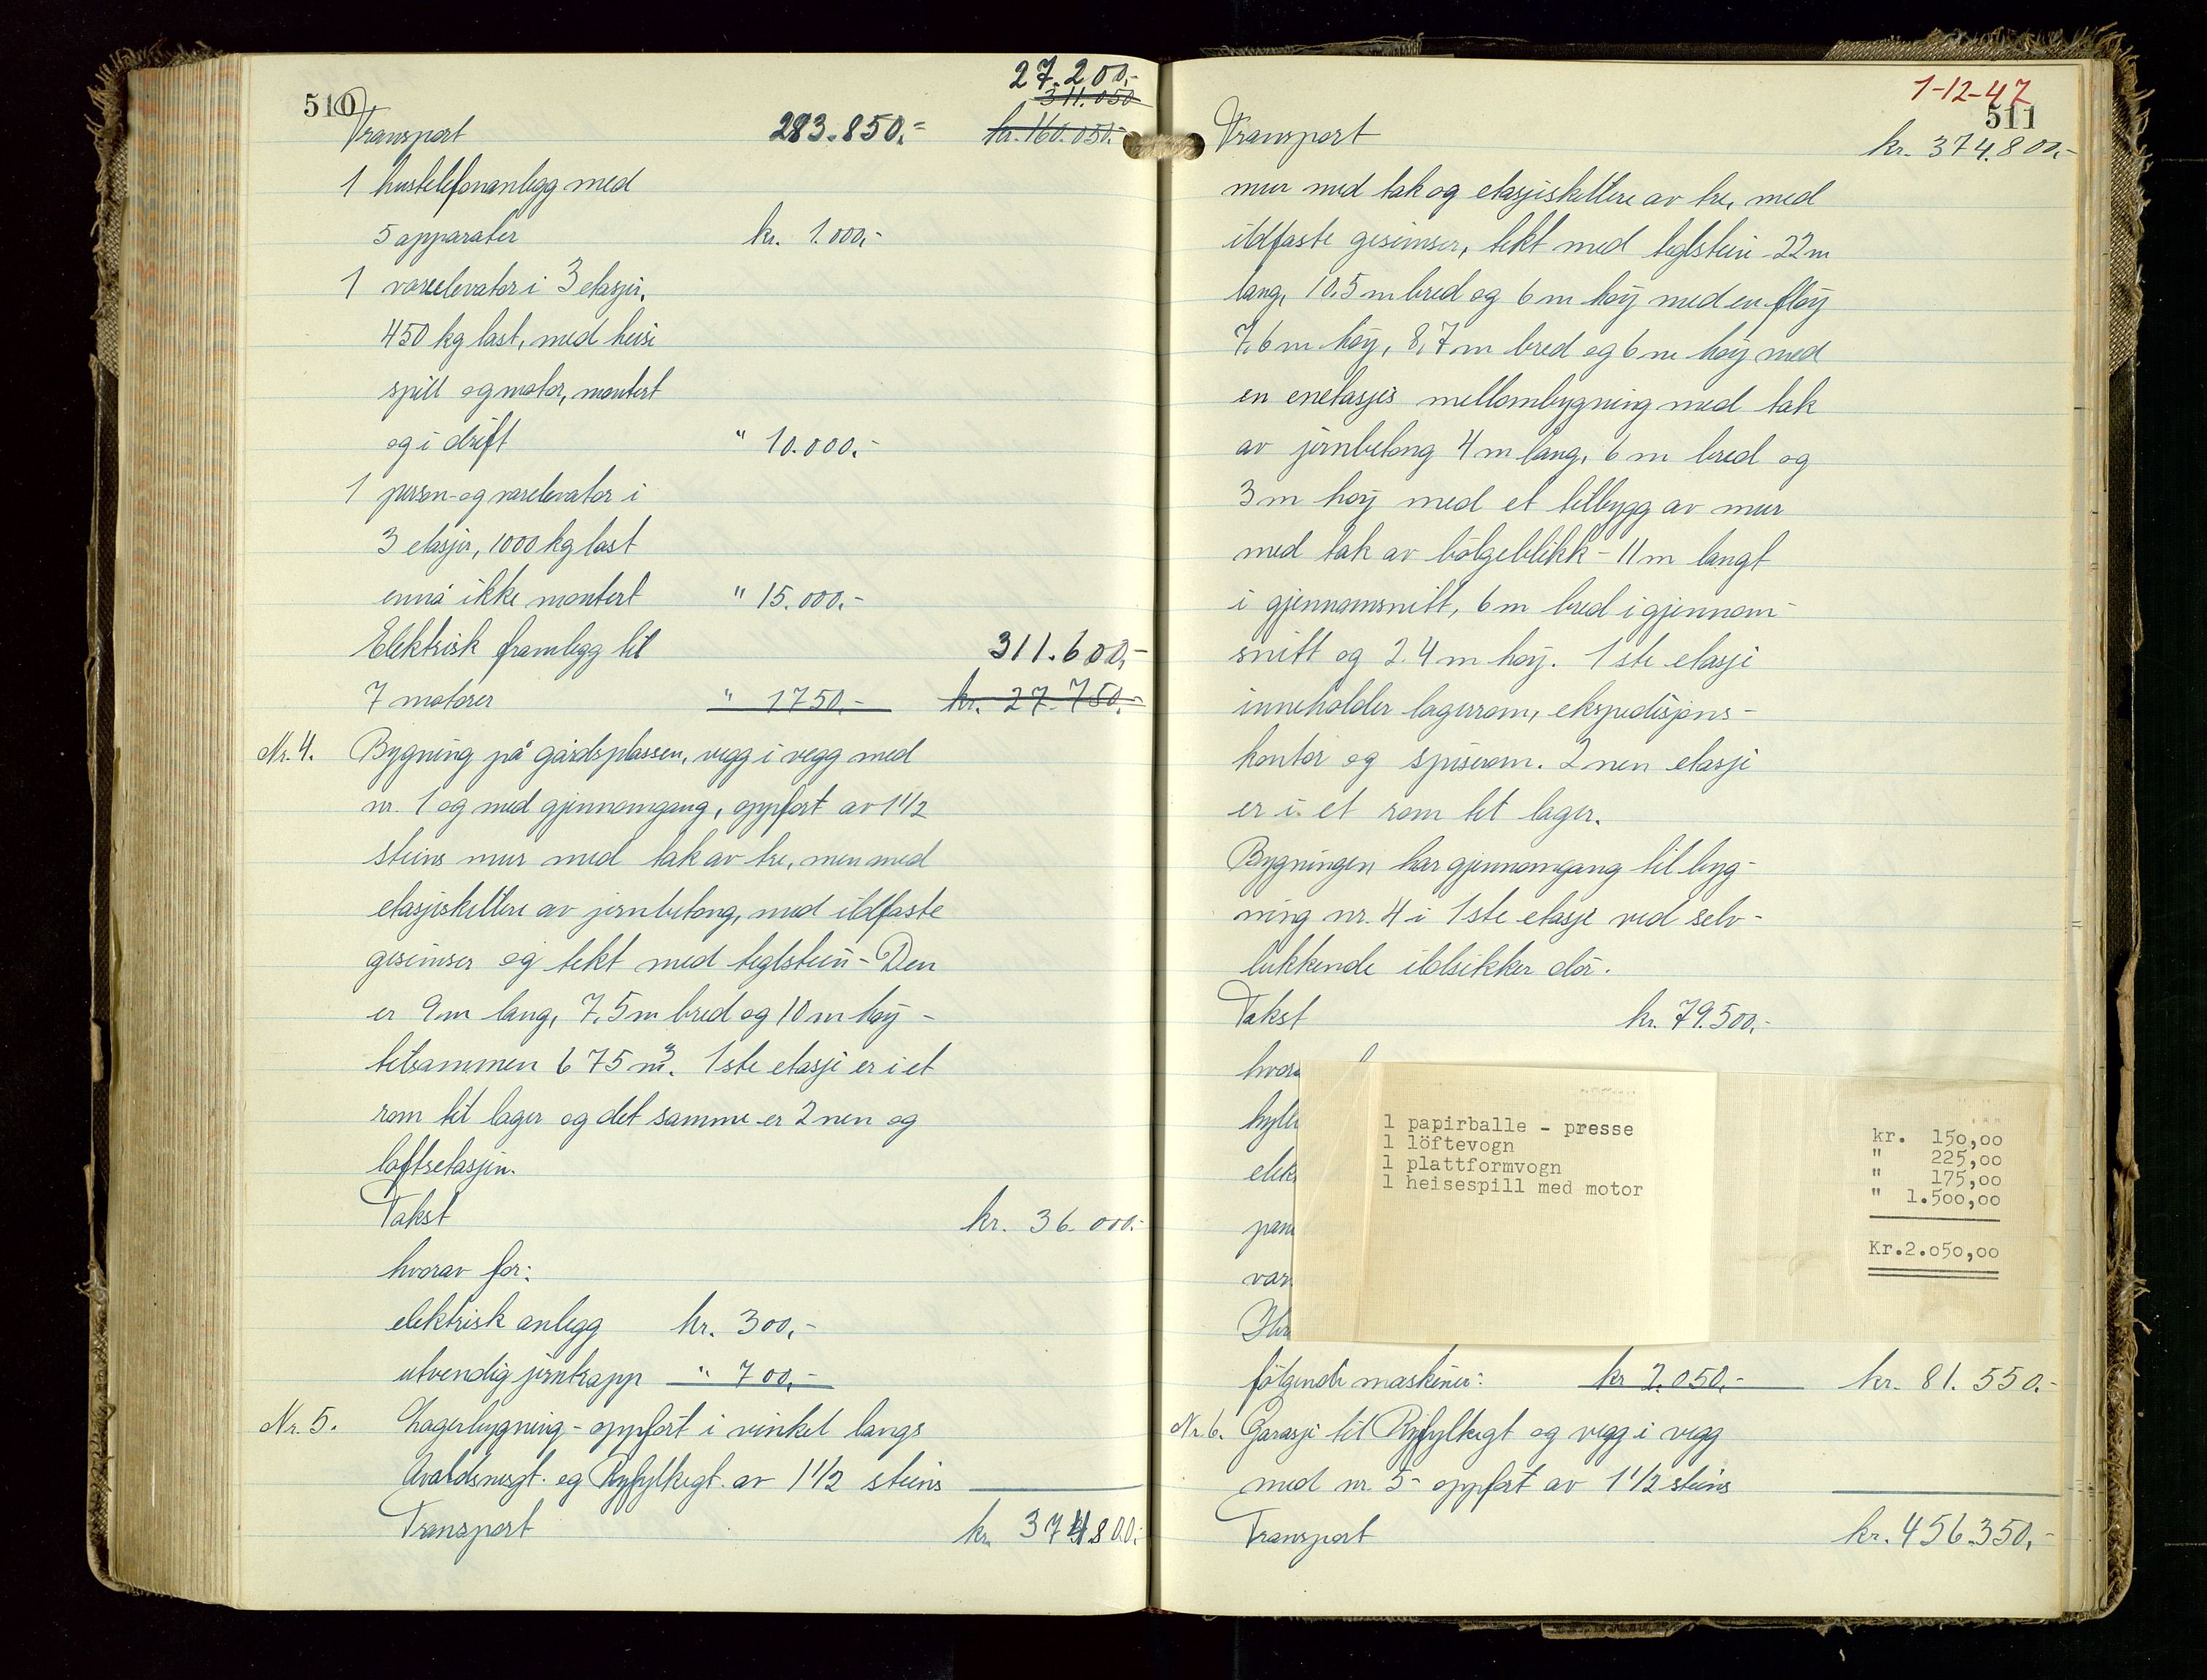 510
27.200,-
311.050
Transport 283.850,- kr. 160.050,-
1 hustelefonanlegg med
5 apparater kr. 1.000,-
1 vareelevator i 3 etasjer,
450 kg last, med heise
spill og motor, montert
og i drift " 10.000,-
1 person- og vareelevator i
3 etasjer, 1000 kg last
ennå ikke montert " 15.000,-
Elektrisk framlegg til 311.600,-
7 motorer " 1750,- kr. 27.750,-
Nr. 4. Bygning på gårdsplassen, vegg i vegg med
nr. 1 og med gjennomgang, oppført av 1 1/2
steins mur med tak av tre, men med
etasjeskillere av jernbetong, med ildfaste
gesimser og tekt med teglstein - Den
er 9 m lang, 7,5 m bred og 10 m høy -
tilsammen 675 m³. 1ste etasje er i et
rom til lager og det samme er 2nen og
loftsetasjen.
Takst kr. 36.000,-
hvorav for:
elektrisk anlegg kr. 300,-
utvendig jerntrapp " 700,-
Nr. 5. Lagerbygning - oppført i vinkel langs
Avaldsnesgt. og Ryfylkegt. av 1 1/2 steins
Transport kr. 374800,-
1-12-47
511
Transport kr. 374.800,-
mur med tak og etasjeskillere av tre, med
ildfaste gesimser, tekt med teglstein - 22 m
lang, 10.5 m bred og 6 m høy med en fløy
7,6 m høy, 8,7 m bred og 6 m høy med
en enetasjes mellombygning med tak
av jernbetong 4 m lang, 6 m bred og
3 m høy med et tilbygg av mur
med tak av bølgeblikk - 11 m langt
i gjennomsnitt, 6 m bred i gjennom-
snitt og 2.4 m høy. 1ste etasje
inneholder lagerrom, ekspedisjons-
kontor og spiserom. 2nen etasje
er i et rom til lager.
Bygningen har gjennomgang til byg-
ning nr. 4 i 1ste etasje ved selv-
lukkende ildsikker dør.
Takst kr. 79.500,-
1 papirballe - presse kr. 150,00
1 löftevogn " 225,00
1 plattformvogn " 175,00
1 heisespill med motor " 1.500,00
Kr.2.050,00
følgende maskiner: kr 2.050,- kr. 81.550,-
Nr. 6. Garasje til Ryfylkegt og vegg i vegg
med nr. 5 - oppført av 1 1/2 steins
Transport kr. 456.350,-